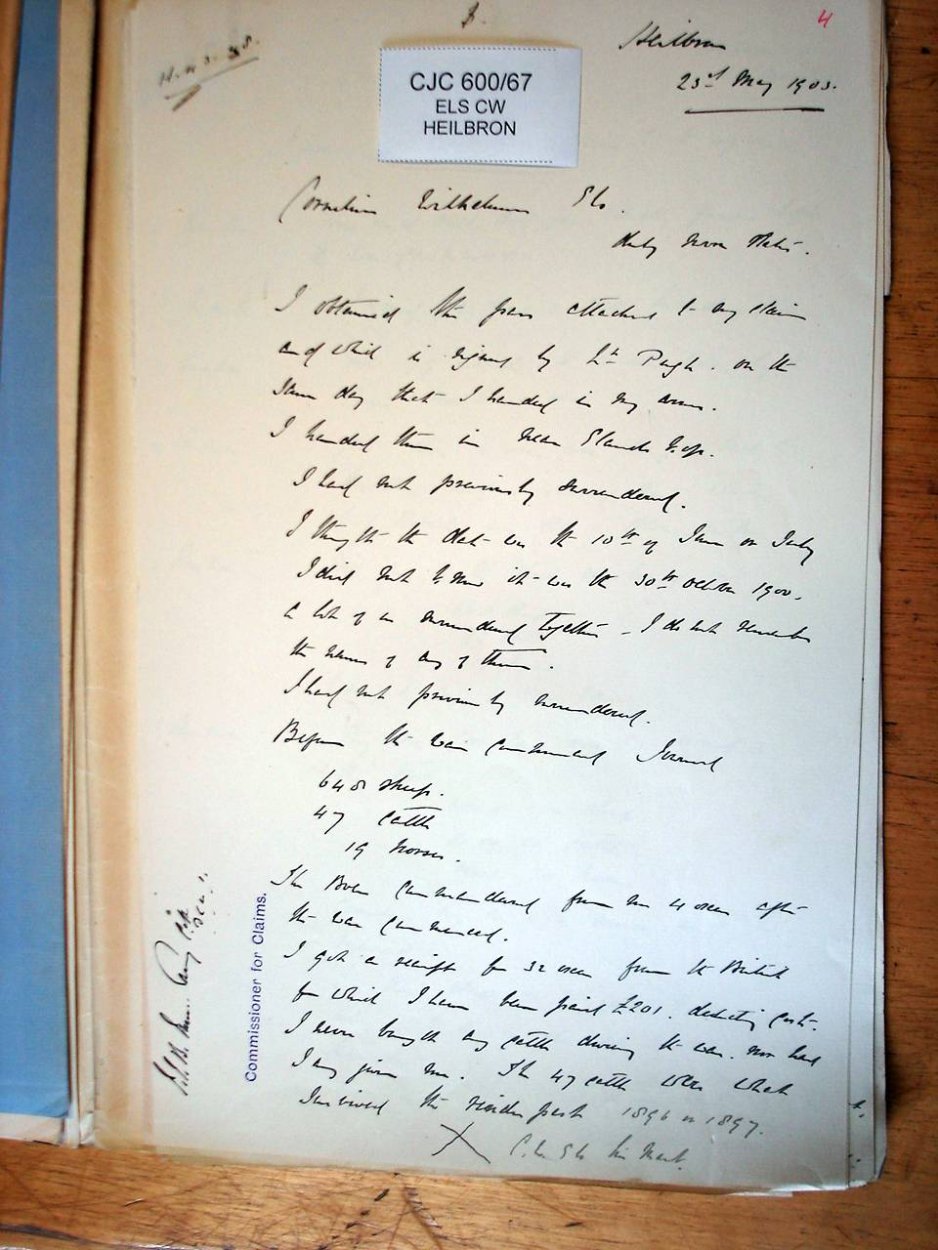 4
Heilbron
23rd May 1903.
CJC 600/67
ELS CW
HEILBRON
Cornelius Wilhelmus Els.
duly sworn states.
I obtained the pass attached to my claim
and which is signed by Lt Pugh. on the
same day that I handed in my arms.
I handed them in near Elands Kop.
I had not previously surrendered.
I thought the date was the 10th of June or July
I did not know it was the 30th October 1900.
a lot of us surrendered together - I do not remember
the names of any of them.
I had not previously surrendered.
Before the war commenced I owned
648 sheep.
47 cattle
19 horses.
The Boers commandeered from me 4 oxen after
the war commenced.
I got a receipt for 32 oxen from the British
for which I have been paid £201. deducting costs.
I never bought any cattle during the war. nor had
I any given me. The 47 cattle were what
survived the rinderpest 1896 or 1897.
X C.W. Els his mark.
Commissioner for Claims.